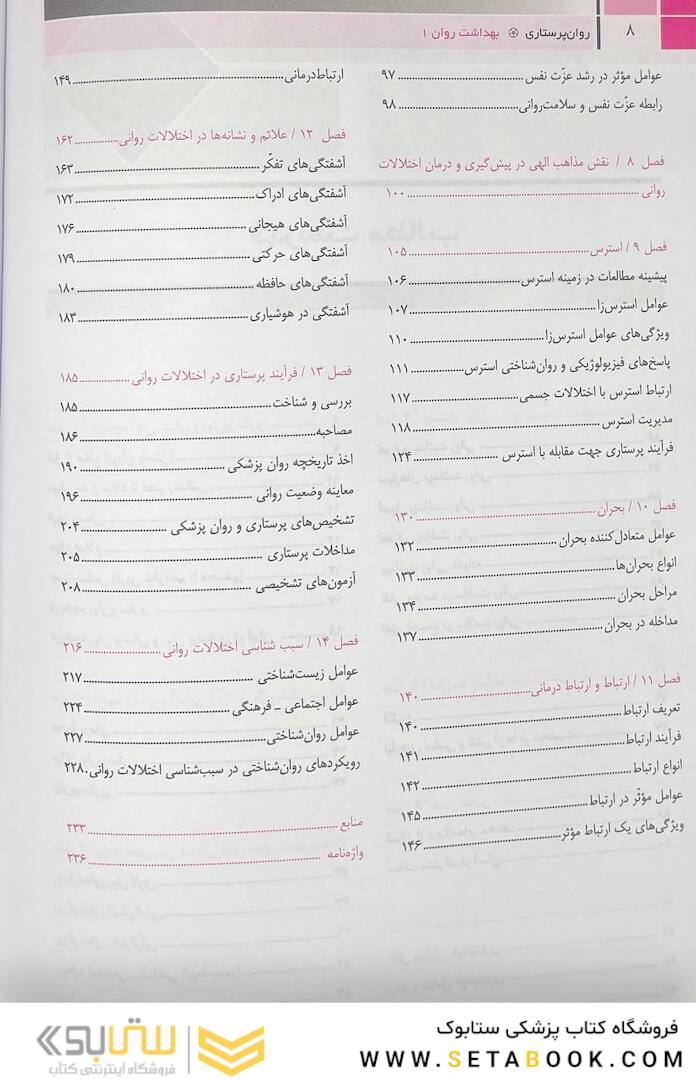 ۸ روان‌پرستاری ֍ بهداشت روان ۱
عوامل مؤثر در رشد عزّت نفس ۹۷
رابطه عزّت نفس و سلامت‌روانی ۹۸
فصل ۸ / نقش مذاهب الهی در پیش‌گیری و درمان اختلالات
روانی ۱۰۰
فصل ۹ / استرس ۱۰۵
پیشینه مطالعات در زمینه استرس ۱۰۶
عوامل استرس‌زا ۱۰۷
ویژگی‌های عوامل استرس‌زا ۱۱۰
پاسخ‌های فیزیولوژیکی و روان‌شناختی استرس ۱۱۱
ارتباط استرس با اختلالات جسمی ۱۱۷
مدیریت استرس ۱۱۸
فرآیند پرستاری جهت مقابله با استرس ۱۲۴
فصل ۱۰ / بحران ۱۳۰
عوامل متعادل‌کننده بحران ۱۳۲
انواع بحران‌ها ۱۳۳
مراحل بحران ۱۳۴
مداخله در بحران ۱۳۷
فصل ۱۱ / ارتباط و ارتباط درمانی ۱۴۰
تعریف ارتباط ۱۴۰
فرآیند ارتباط ۱۴۱
انواع ارتباط ۱۴۲
عوامل مؤثّر در ارتباط ۱۴۵
ویژگی‌های یک ارتباط مؤثر ۱۴۶
ارتباط‌درمانی ۱۴۹
فصل ۱۲ / علائم و نشانه‌ها در اختلالات روانی ۱۶۲
آشفتگی‌های تفکّر ۱۶۳
آشفتگی‌های ادراک ۱۷۲
آشفتگی‌های هیجانی ۱۷۶
آشفتگی‌های حرکتی ۱۷۹
آشفتگی‌های حافظه ۱۸۰
آشفتگی در هوشیاری ۱۸۳
فصل ۱۳ / فرآیند پرستاری در اختلالات روانی ۱۸۵
بررسی و شناخت ۱۸۵
مصاحبه ۱۸۶
اخذ تاریخچه روان پزشکی ۱۹۰
معاینه وضعیت روانی ۱۹۶
تشخیص‌های پرستاری و روان پزشکی ۲۰۴
مداخلات پرستاری ۲۰۵
آزمون‌های تشخیصی ۲۰۸
فصل ۱۴ / سبب شناسی اختلالات روانی ۲۱۶
عوامل زیست‌شناختی ۲۱۷
عوامل اجتماعی ـ فرهنگی ۲۲۴
عوامل روان‌شناختی ۲۲۷
رویکردهای روان‌شناختی در سبب‌شناسی اختلالات روانی ۲۲۸
منابع ۲۳۳
واژه‌نامه ۲۳۶
فروشگاه کتاب پزشکی ستابوک
WWW.SETABOOK.COM
ستابوک
فروشگاه اینترنتی کتاب